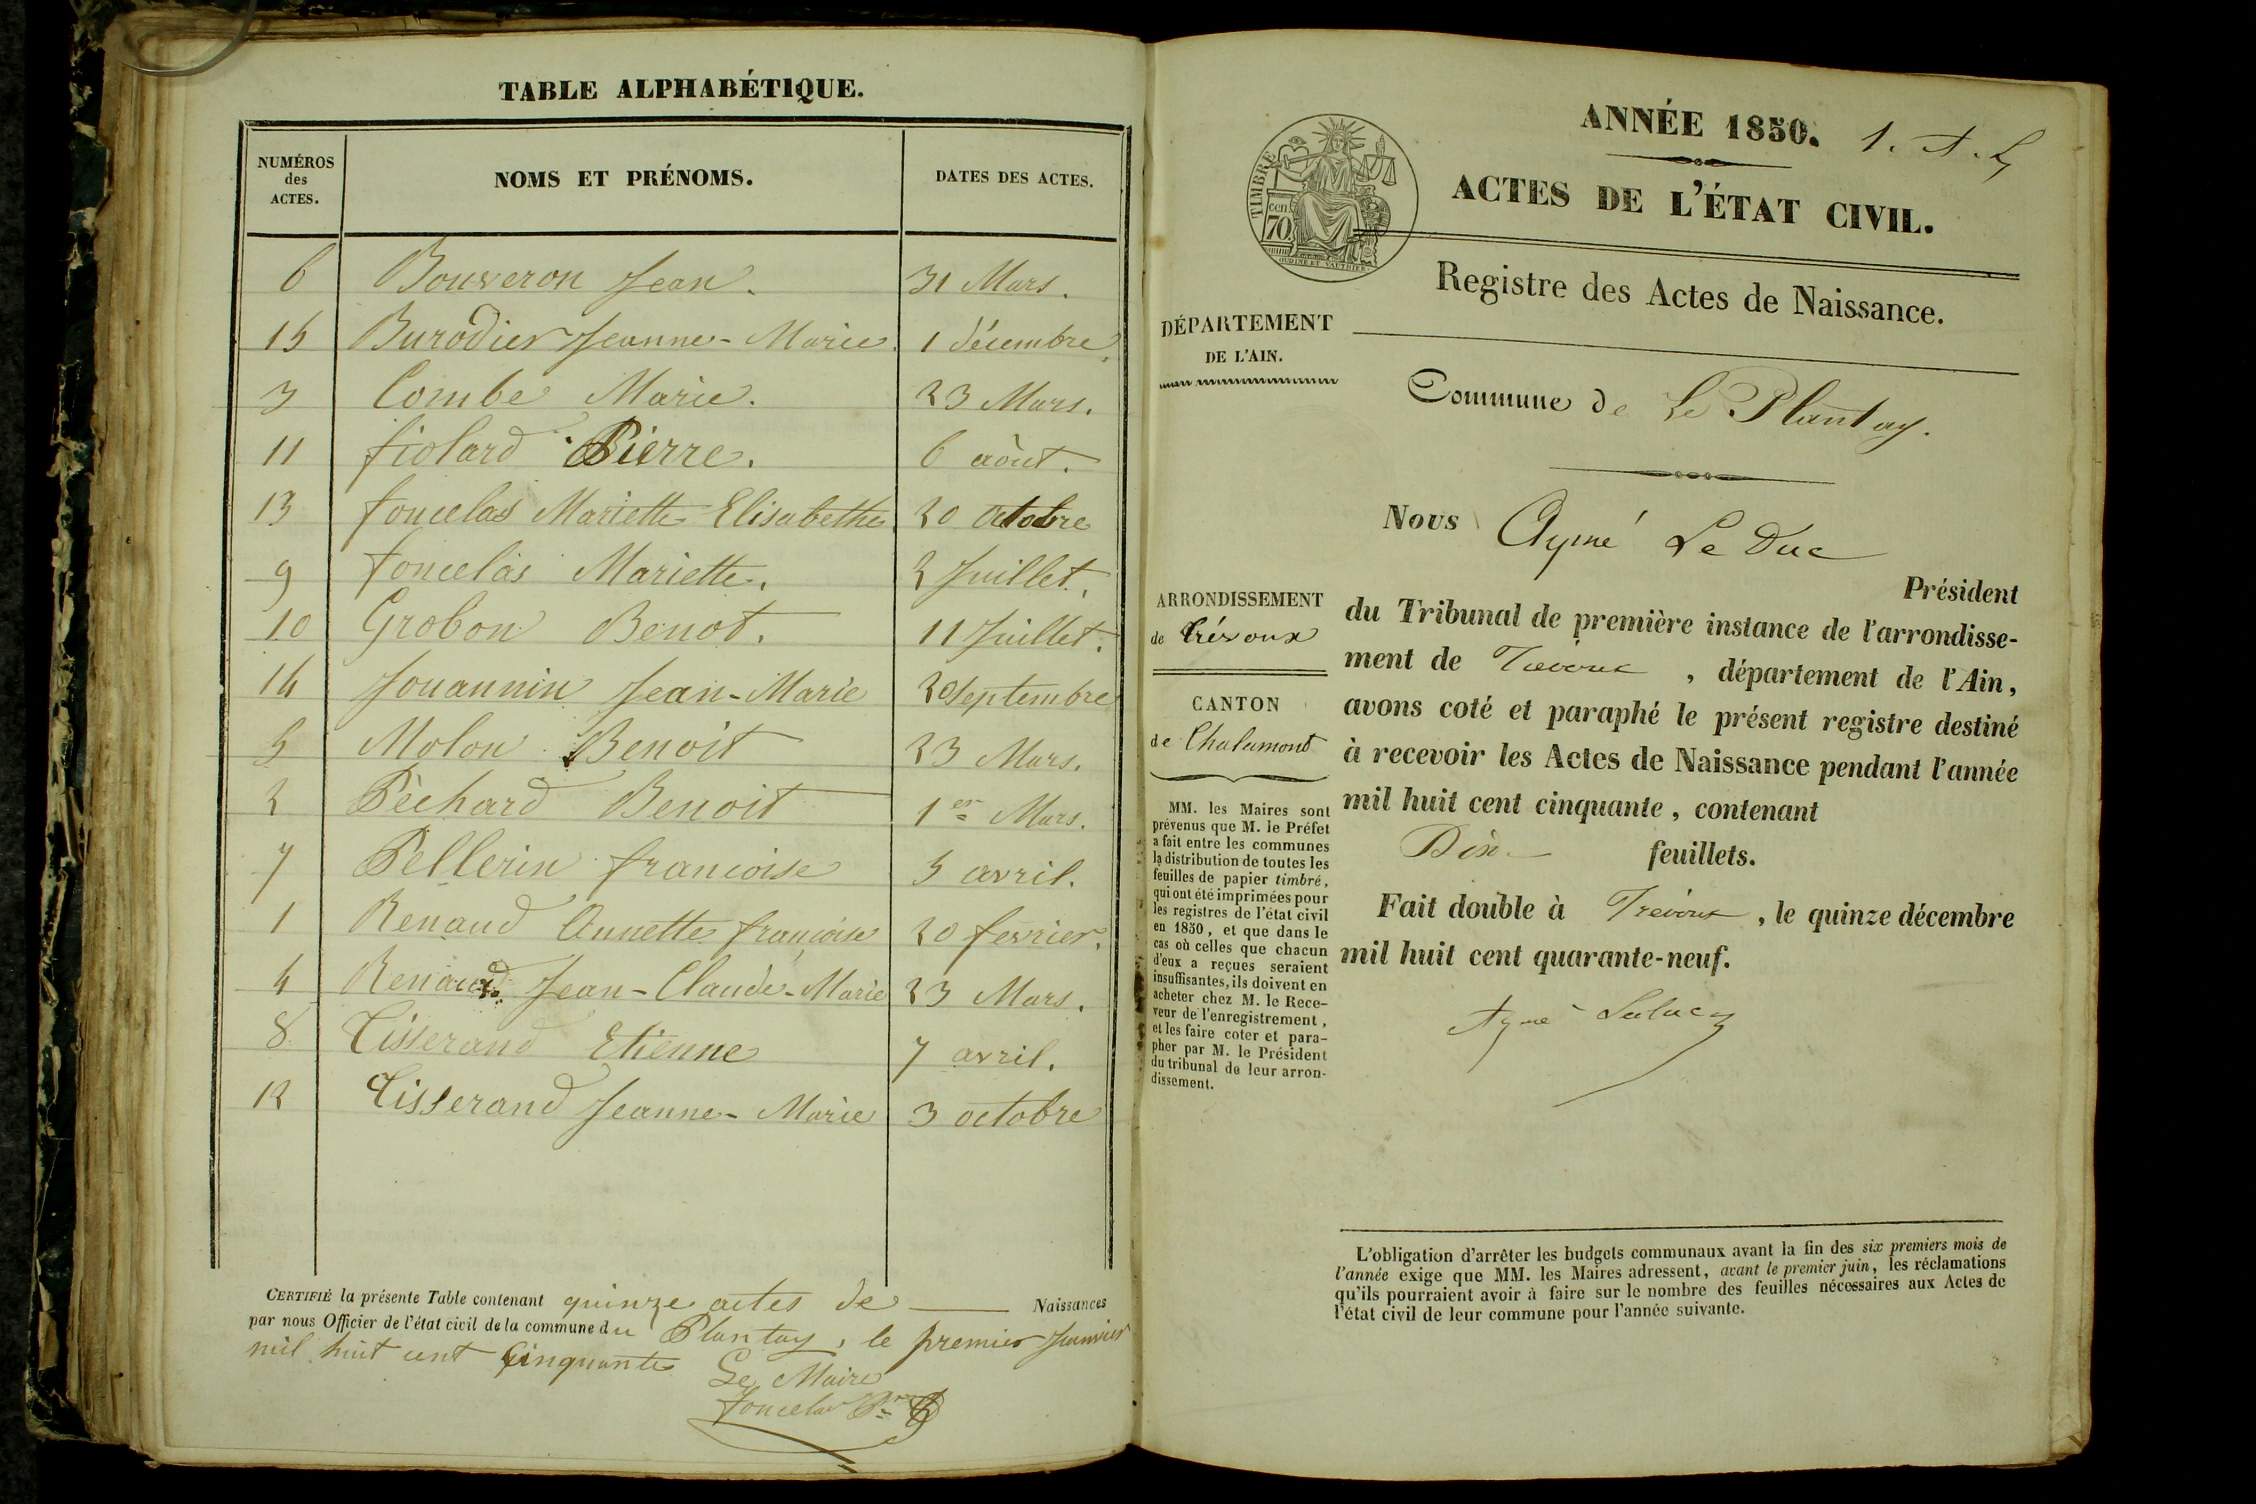 TABLE ALPHABÉTIQUE.
NUMÉROS des ACTES. NOMS ET PRÉNOMS. DATES DES ACTES.
6 Bouveron Jean. 31 Mars.
15 Burodier Jeanne-Marie. 1 décembre.
3 Combe Marie. 23 Mars.
11 fiolard Pierre. 6 août.
13 foncelas Mariette Elisabethe 20 octobre
9 foncelas Mariette. 2 Juillet.
10 Grobon Benot. 11 Juillet.
14 Jouannin Jean-Marie 20 septembre
5 Molon Benoit 23 Mars.
2 Péchard Benoit 1er Mars.
7 Pellerin francoise 5 avril.
1 Renaud Annette françoise 20 fevrier.
4 Renaud Jean-Claude-Marie 23 Mars.
8 Tisserand Etienne 7 avril.
12 Tisserand Jeanne-Marie 3 octobre
CERTIFIÉ la présente Table contenant quinze actes de Naissances
par nous Officier de l'état civil de la commune du Plantay, le premier Janvier
mil huit cent Cinquante
Le Maire
foncelas
ANNÉE 1850. 1.
ACTES DE L'ÉTAT CIVIL.
TIMBRE
cen
70
OUDINE ET VAUTHIER
Registre des Actes de Naissance.
DÉPARTEMENT
DE L'AIN.
Commune de Le Plantay.
Nous Aymé Le Duc
Président
du Tribunal de première instance de l'arrondisse-
ment de Trévoux, département de l'Ain,
avons coté et paraphé le présent registre destiné
à recevoir les Actes de Naissance pendant l'année
mil huit cent cinquante, contenant
Dix feuillets.
Fait double à Trévoux, le quinze décembre
mil huit cent quarante-neuf.
Aymé Leduc
ARRONDISSEMENT
de Trévoux
CANTON
de Chalamont
MM. les Maires sont
prévenus que M. le Préfet
a fait entre les communes
la distribution de toutes les
feuilles de papier timbré,
qui ont été imprimées pour
les registres de l'état civil
en 1850, et que dans le
cas où celles que chacun
d'eux a reçues seraient
insuffisantes, ils doivent en
acheter chez M. le Rece-
veur de l'enregistrement,
et les faire coter et para-
pher par M. le Président
du tribunal de leur arron-
dissement.
L'obligation d'arrêter les budgets communaux avant la fin des six premiers mois de
l'année exige que MM. les Maires adressent, avant le premier juin, les réclamations
qu'ils pourraient avoir à faire sur le nombre des feuilles nécessaires aux Actes de
l'état civil de leur commune pour l'année suivante.